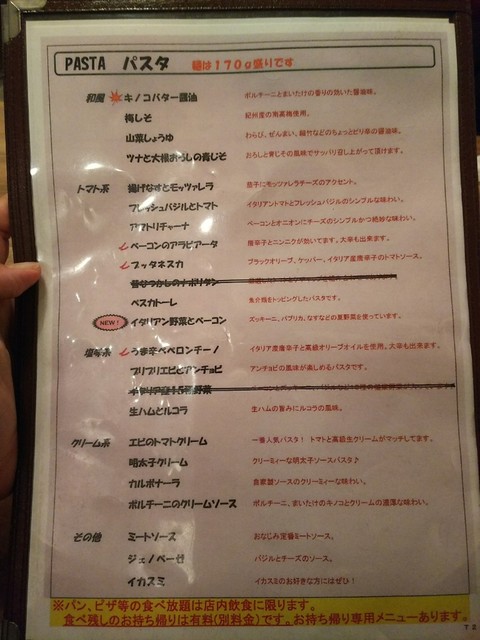 PASTA パスタ 麺は170g盛りです
和風 キノコバター醤油 ポルチーニとまいたけの香りの効いた醤油味。
梅しそ 紀州産の南高梅使用。
山菜しょうゆ わらび、ぜんまい、細竹などのちょっとピリ辛の醤油味。
ツナと大根おろしの青じそ おろしと青じその風味でサッパリ召し上がって頂けます。
トマト系 揚げなすとモッツァレラ 茄子にモッツァレラチーズのアクセント。
フレッシュバジルとトマト イタリアントマトとフレッシュバジルのシンプルな味わい。
アマトリチャーナ ベーコンとオニオンにチーズのシンプルかつ絶妙な味わい。
ベーコンのアラビアータ 唐辛子とニンニクが効いてます。大辛も出来ます。
プッタネスカ ブラックオリーブ、ケッパー、イタリア産唐辛子のトマトソース。
昔なつかしのナポリタン
ペスカトーレ 魚介類をトッピングしたパスタです。
NEW! イタリアン野菜とベーコン ズッキーニ、パプリカ、なすなどの夏野菜を使っています。
塩味系 うま辛ペペロンチーノ イタリア産唐辛子と高級オリーブオイルを使用。大辛も出来ます。
プリプリエビとアンチョビ アンチョビの風味が楽しめるパスタです。
生ハムとルコラ 生ハムの旨みにルコラの風味。
クリーム系 エビのトマトクリーム 一番人気パスタ! トマトと高級生クリームがマッチしてます。
明太子クリーム クリーミィーな明太子ソースパスタ♪
カルボナーラ 自家製ソースのクリーミィーな味わい。
ポルチーニのクリームソース ポルチーニ、まいたけのキノコとクリームの濃厚な味わい。
その他 ミートソース おなじみ定番ミートソース。
ジェノベーゼ バジルとチーズのソース。
イカスミ イカスミのお好きな方にはぜひ!
※パン、ピザ等の食べ放題は店内飲食に限ります。
食べ残しのお持ち帰りは有料(別料金)です。お持ち帰り専用メニューあります。
T2